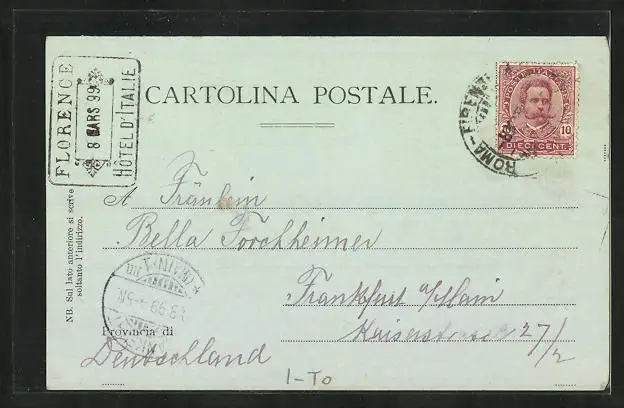 FLORENCE
8 MARS 99
HÔTEL D'ITALIE
CARTOLINA POSTALE.
ROMA-FIRENZE
POSTE ITALIANE
10
DIECI CENT.
A Fräulein
Bella Forchheimer
Frankfurt a/Main
Kaiserstrasse 27/2
Provincia di
Deutschland
NB. Sul lato anteriore si scrive
soltanto l'indirizzo.
(MAIN) 1
99
1-To